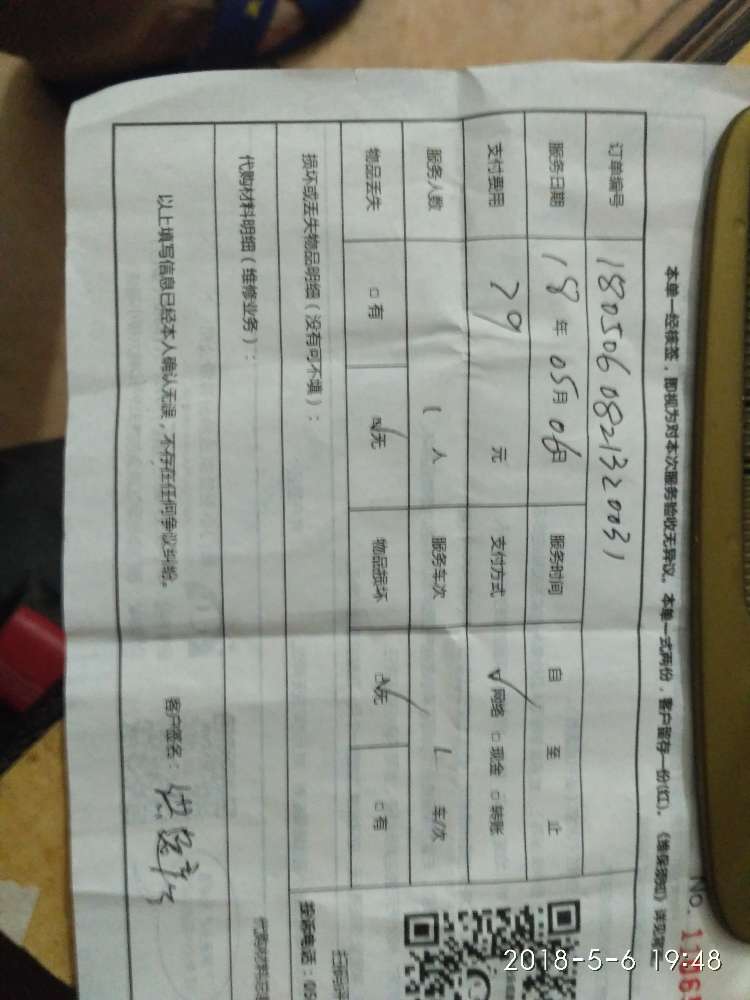 No. 11
本单一经核签，即视为对本次服务验收无异议。本单一式两份，客户留存一份(红)。《维保须知》详见
订单编号 180506082132003 1
服务日期 18年 05月 06日 服务时间 自 至 止
支付费用 79 元 支付方式 ☑网络 □现金 □转账
服务人数 1 人 服务车次 1 车/次
物品丢失 □有 ☑无 物品损坏 ☑无 □有
损坏或丢失物品明细（没有可不填）：
代购材料明细（维修业务）：
以上填写信息已经本人确认无误，不存在任何争议纠纷。
客户签名：
扫码
投诉电话：05
代购材料
2018-5-6 19:48